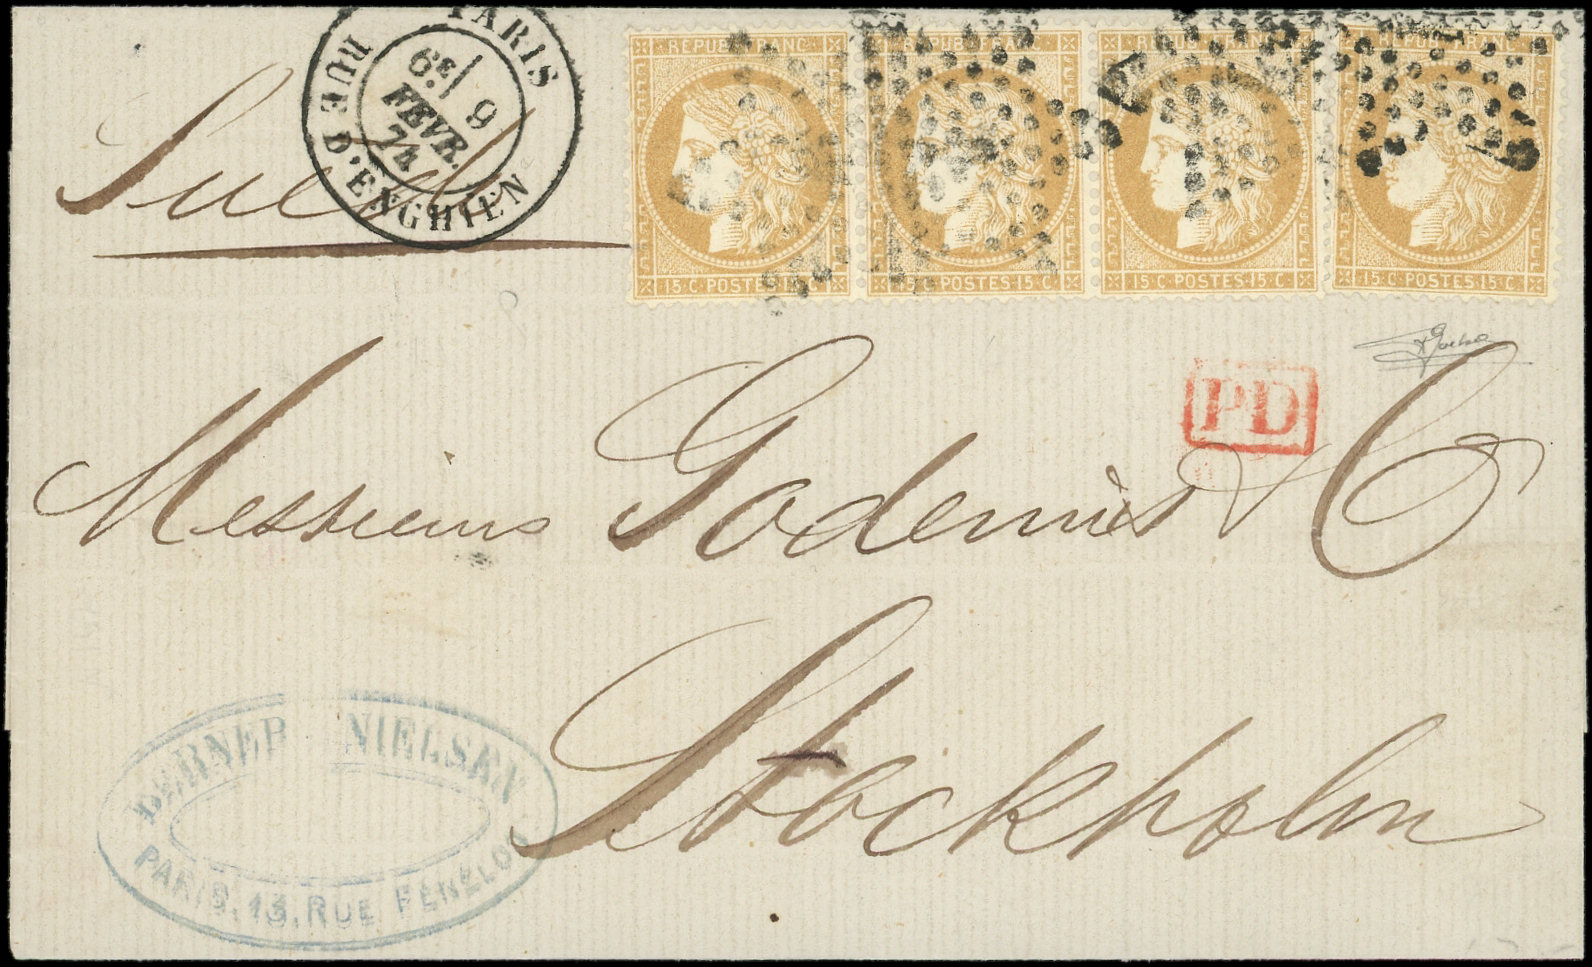 PARIS
RUE D'ENGHIEN
6E 9
FEVR.
74
REPUB FRANC
15 C POSTES 15 C
REPUB FRANC
15 C POSTES 15 C
REPUB FRANC
15 C POSTES 15 C
REPUB FRANC
15 C POSTES 15 C
Suède
PD
Messieurs Godenius & C
Stockholm
NIELSEN
PARIS, 13, RUE FENELON